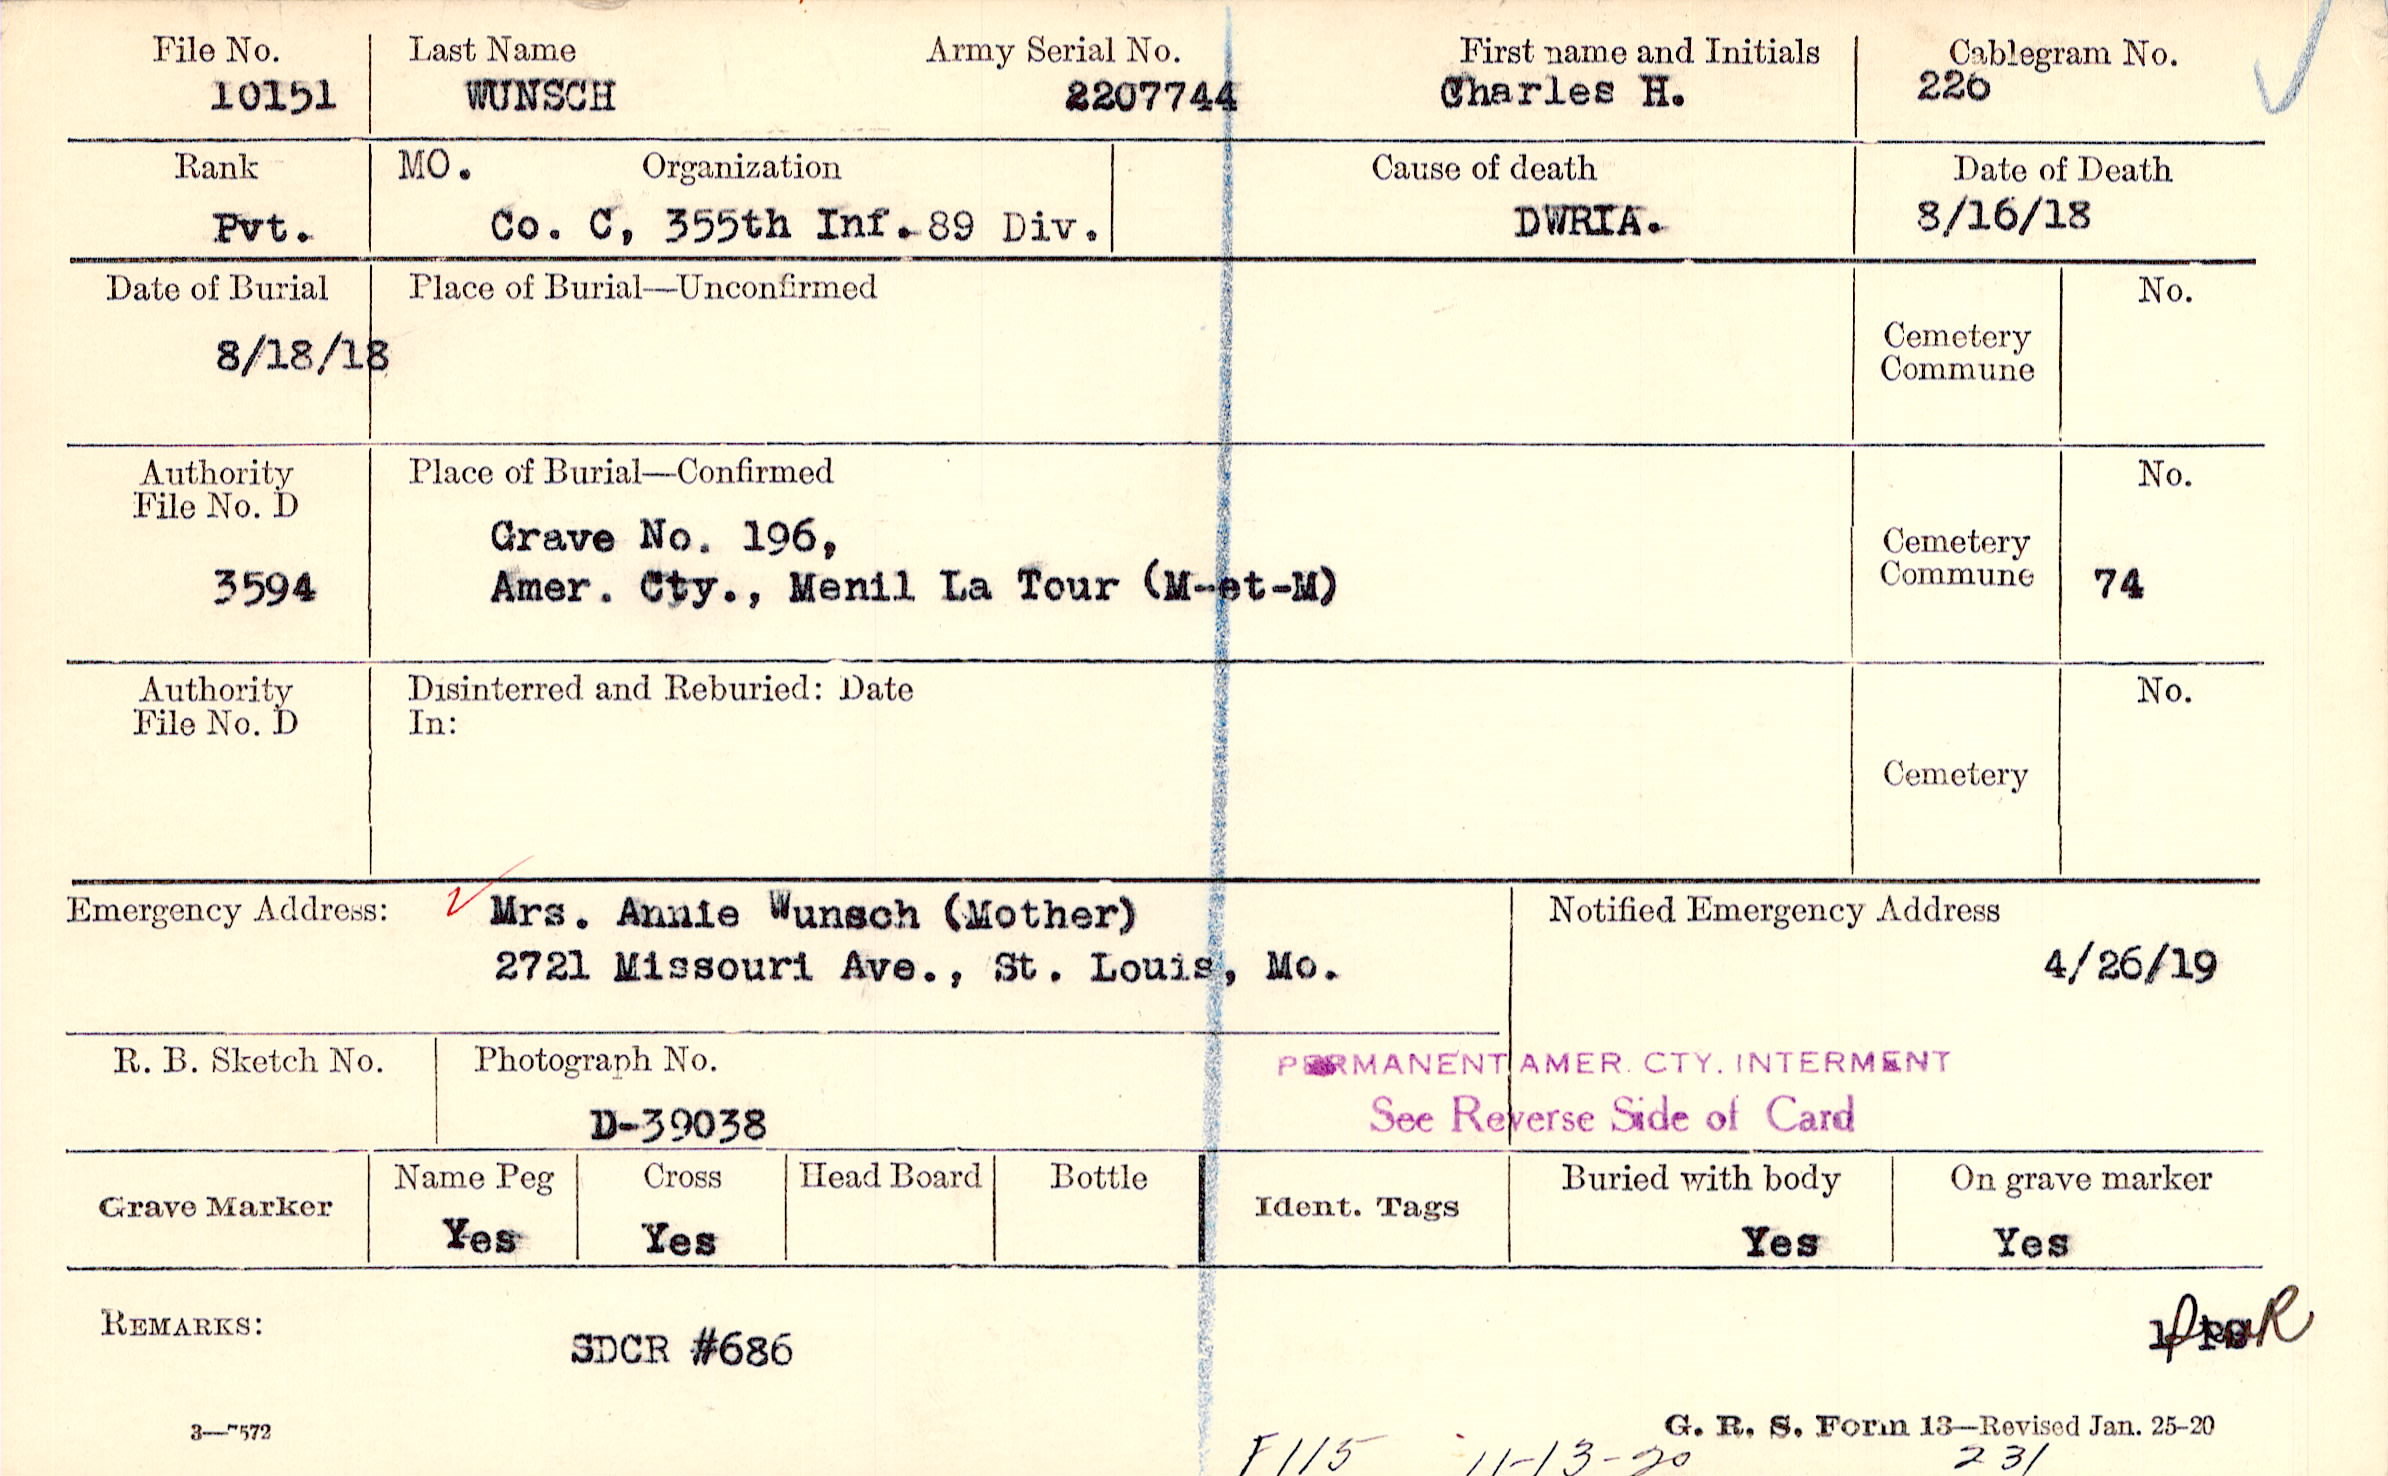 File No. Last Name Army Serial No. First name and Initials Cablegram No.
10151 WUNSCH 2207744 Charles H. 226
Rank MO. Organization Cause of death Date of Death
Pvt. Co. C, 355th Inf. 89 Div. DWRIA. 8/16/18
Date of Burial Place of Burial—Unconfirmed No.
8/18/18
Cemetery
Commune
Authority Place of Burial—Confirmed No.
File No. D
Grave No. 196,
Cemetery
3594 Amer. Cty., Menil La Tour (M-et-M) Commune 74
Authority Disinterred and Reburied: Date No.
File No. D In:
Cemetery
Emergency Address: Mrs. Annie Wunsch (Mother) Notified Emergency Address
2721 Missouri Ave., St. Louis, Mo. 4/26/19
R. B. Sketch No. Photograph No. PERMANENT AMER. CTY. INTERMENT
D-39038 See Reverse Side of Card
Grave Marker Name Peg Cross Head Board Bottle Ident. Tags Buried with body On grave marker
Yes Yes Yes Yes
REMARKS: SDCR #686
3—7572 G. R. S. Form 13—Revised Jan. 25-20
F115 11-13-20 231